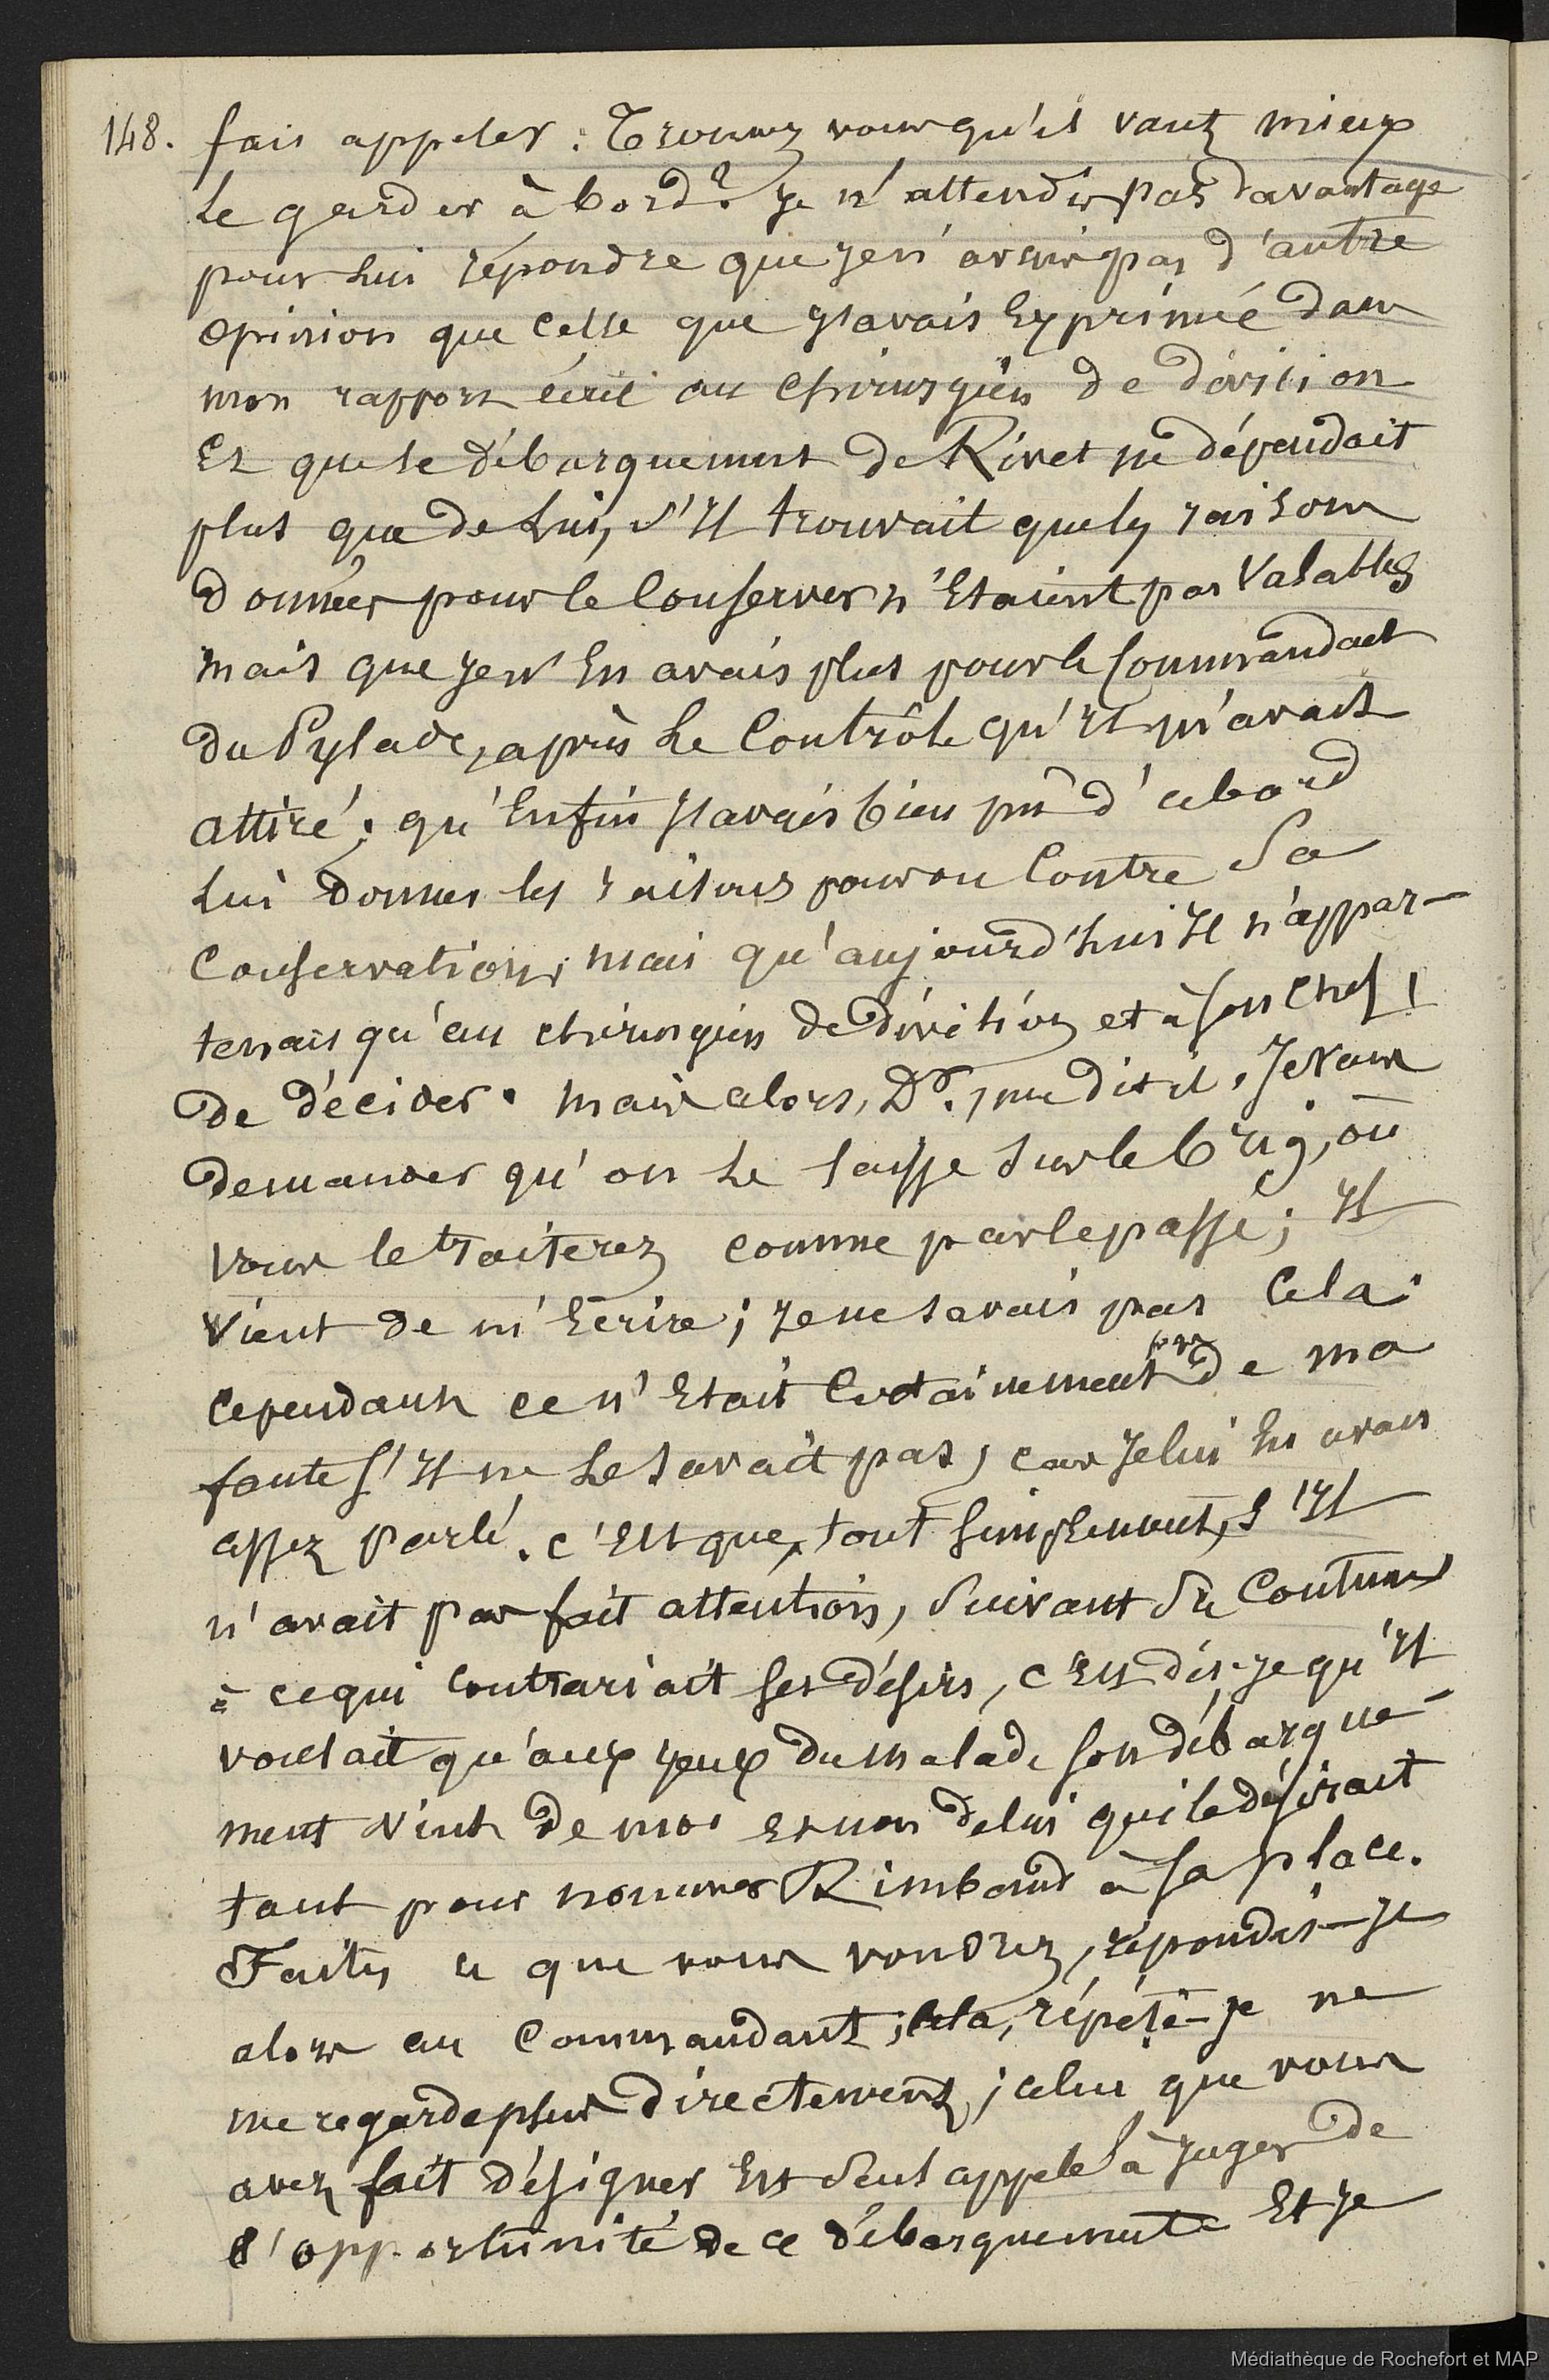 148. fais appeler : Trouvez vous qu'il vaut mieux
le garder à bord ? je n'attendis pas davantage
pour lui répondre que je n'avais pas d'autre
opinion que celle que j'avais Exprimée dans
mon rapport écrit au chirurgien de division
Et que le débarquement de Rivet ne dépendait
plus que de lui, s'il trouvait que les raisons
données pour le Conserver n'Etaient pas Valables
mais que je n'En avais plus pour le Commandant
du Pylade, après le Contrôle qu'il m'avait
attiré ; qu'Enfin j'avais bien pû d'abord
lui donner les raisons pour ou Contre sa
Conservation, mais qu'aujourd'hui il n'appar-
tenait qu'au chirurgien de division et à son chef
de décider. mais alors, Dr., me dit il, je vais
demander qu'on le laisse sur le brig, où
vous le traiterez comme par le passé ; il
vient de m'Ecrire ; je ne savais pas Cela.
cependant ce n'Etait Certainement pas de ma
faute s'il ne le savait pas, car je lui En avais
assez parlé. c'Est que, tout simplement, s'il
n'avait pas fait attention, suivant sa Coutume
à ce qui Contrariait ses désirs, c'Est dis-je qu'il
voulait qu'aux yeux du malade son débarque-
ment vint de moi et non de lui qui le désirait
tant pour nommer Rimbaud à sa place.
Faites ce que vous voudrez, répondis-je
alors au Commandant ; Cela, répétè-je ne
me regarde plus directement ; celui que vous
avez fait désigner Est seul appelé à juger de
l'opportunité de ce débarquement Et je
Médiathèque de Rochefort et MAP